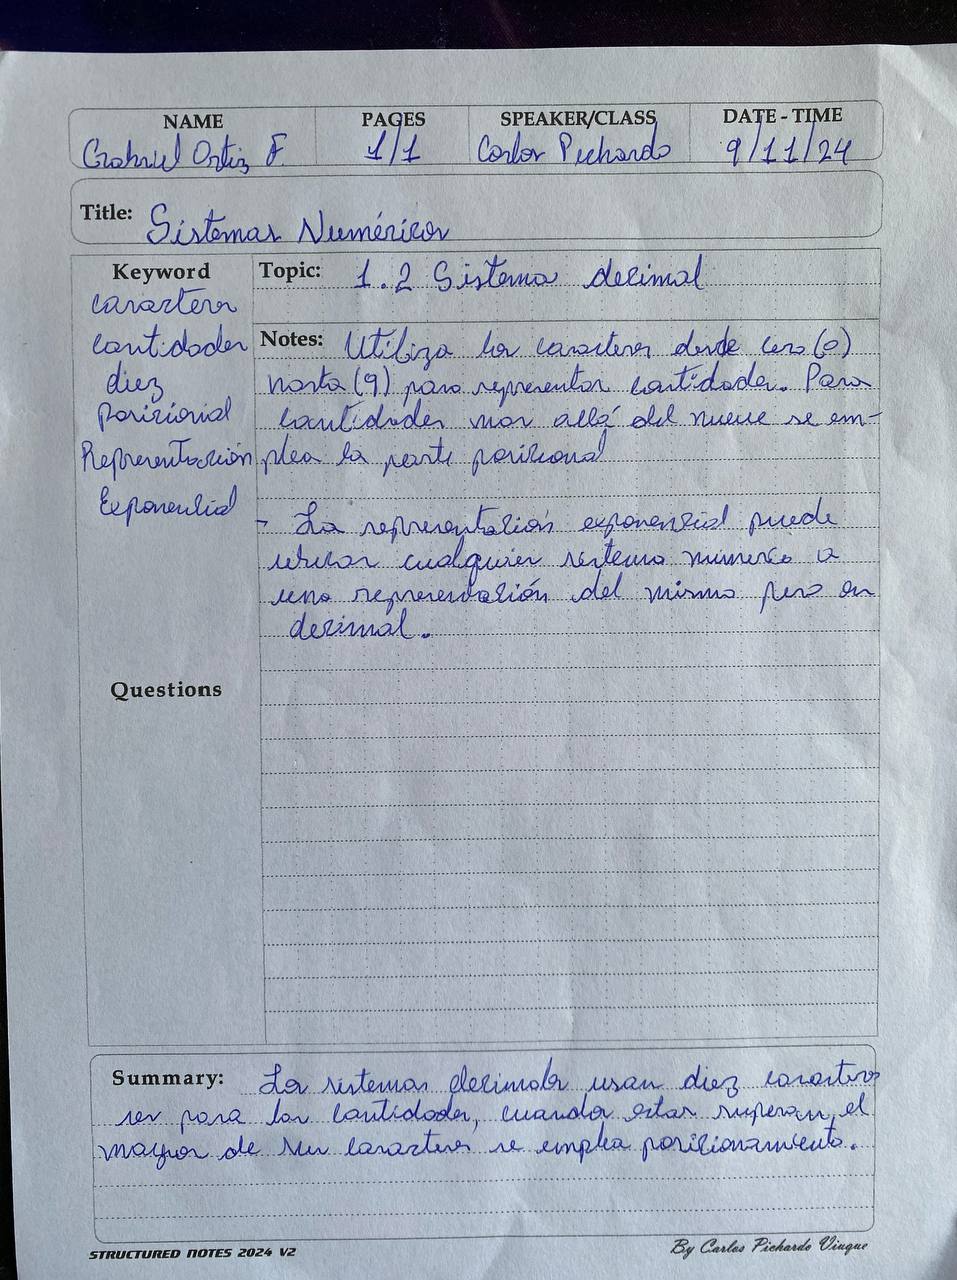 NAME PAGES SPEAKER/CLASS DATE - TIME
Gabriel Ortiz F. 1/1 Carlos Pichardo 9/11/24
Title: Sistemas Numéricos
Keyword
caracteres
cantidades
diez
posicional
Representación
Exponencial
Questions
Topic: 1.2 Sistema decimal
Notes: Utiliza los caracteres desde cero (0)
hasta (9) para representar cantidades. Para
cantidades mas allá del nueve se em-
plea la parte posicional
- La representación exponencial puede
cualquier sistema númerico a
una representación del mismo pero en
decimal.
Summary: Los sistemas decimales usan diez caracte
res para las cantidades, cuando estas superan el
mayor de sus caracteres se emplea posicionamiento.
STRUCTURED NOTES 2024 V2
By Carlos Pichardo Viuque